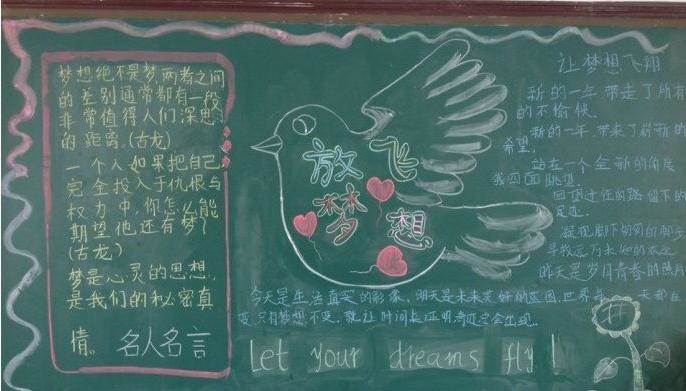 梦想绝不是梦,两者之间
的差别通常都有一段
非常值得人们深思
的距离。(古龙)
一个人如果把自己
完全投入于仇恨与
权力中,你怎么能
期望他还有梦?
(古龙)
梦是心灵的思想,
是我们的秘密真
情。 名人名言
放飞
梦想
让梦想飞翔
新的一年,带走了所有
的不愉快,
新的一年,带来了崭新的
希望。
站在一个全新的角度
我四面眺望。
回望过往的路留下的
足迹,
昨天是岁月青春的照片
今天是生活真实的彩象,明天是未来美好的蓝图,世界每 天都在
变,只有梦想不变,就让时间长证明奇迹定会出现。
Let your dreams fly !